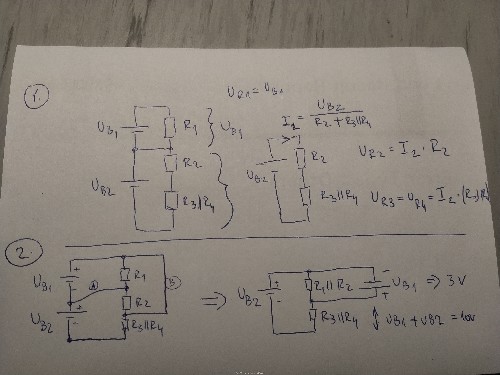 1.
U_R1 = U_B1
U_B1
R1
} U_B1
R2
U_B2
R3||R4
I_2 = U_B2 / (R2 + R3||R4)
U_B2
R2
R3||R4
U_R2 = I_2 · R2
U_R3 = U_R4 = I_2 · (R3||R
2.
U_B1
+
-
A
R1
B
U_B2
+
-
R2
R3||R4
⇒
U_B2
+
-
R1||R2
R3||R4
-
+
U_B1 ⇒ 3V
U_B1 + U_B2 = 10V